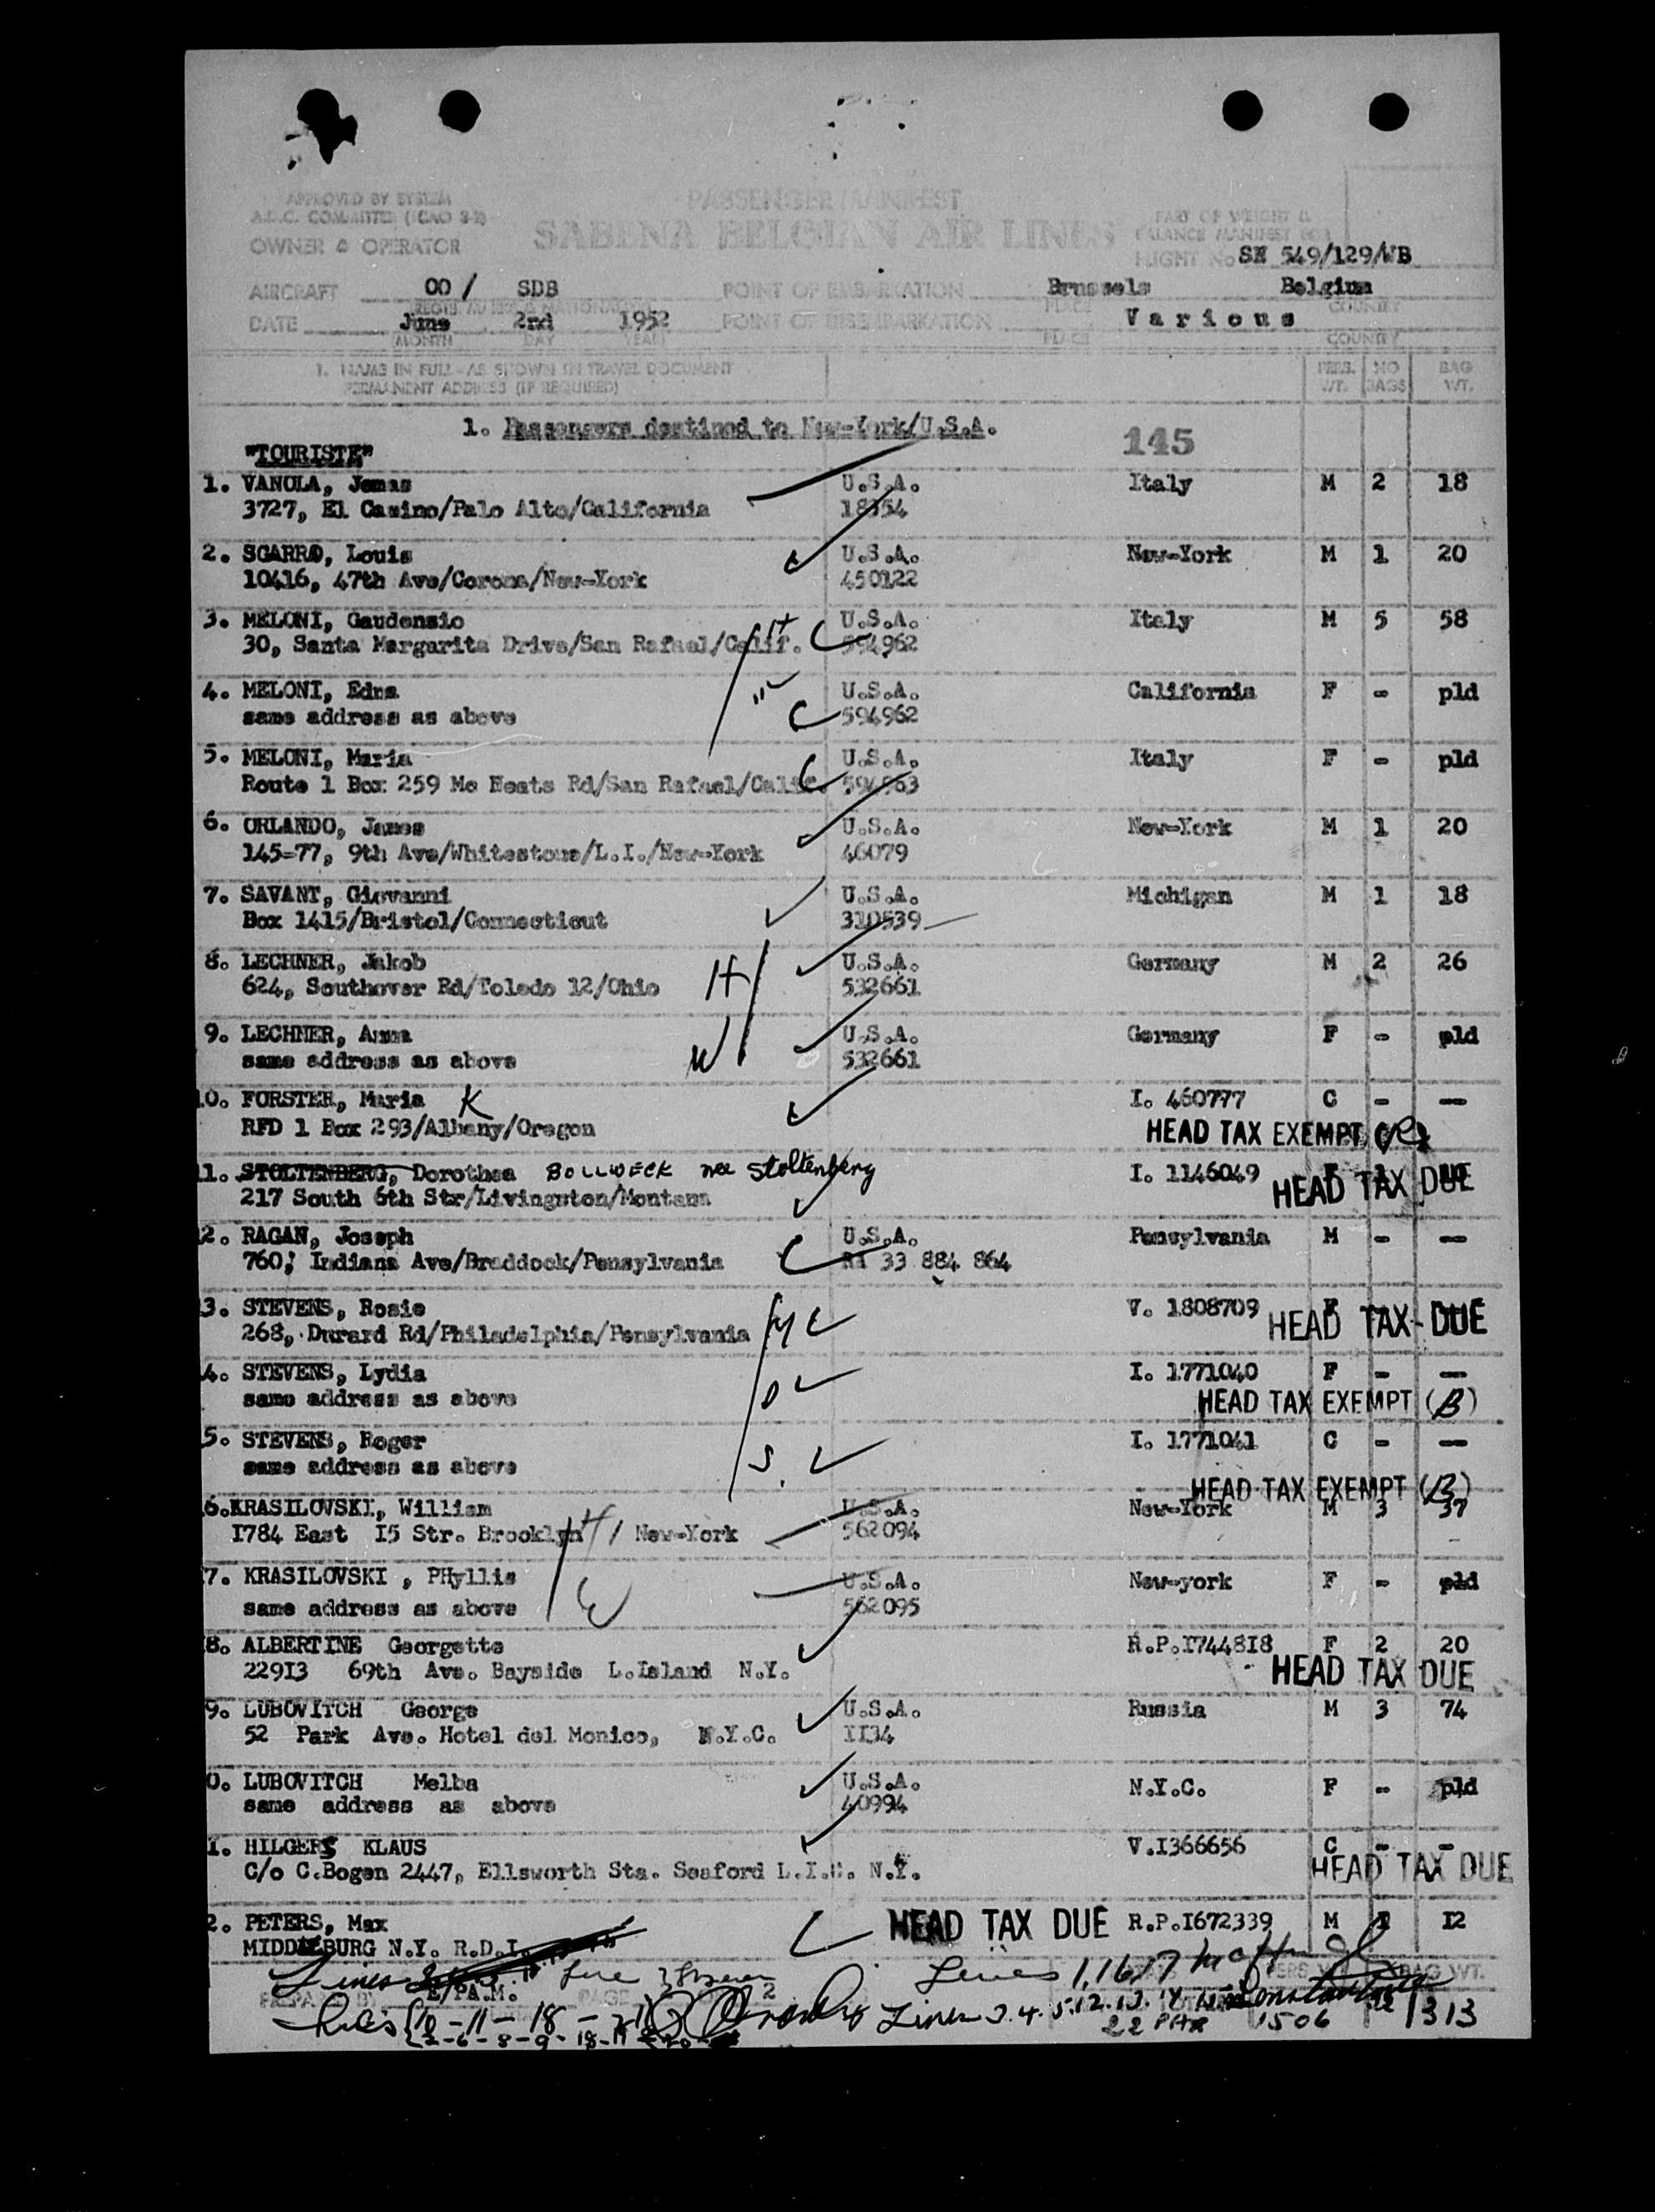 APPROVED BY SYSTEM
A.D.C. COMMITTEE (ICAO 3-2)
OWNER & OPERATOR
PASSENGER MANIFEST
SABENA BELGIAN AIR LINES
PART OF WEIGHT &
BALANCE MANIFEST FOR
FLIGHT No SN 549/129/WB
AIRCRAFT OO / SDB POINT OF EMBARKATION Brussels Belgium
PLACE COUNTRY
DATE June 2nd 1952 POINT OF DISEMBARKATION Various
MONTH DAY YEAR PLACE COUNTRY
1. NAME IN FULL - AS SHOWN IN TRAVEL DOCUMENT PERS. NO BAG
PERMANENT ADDRESS (IF REQUIRED) WT. BAGS WT.
1. Passengers destined to New-York/U.S.A. 145
"TOURISTE"
1. VANOLA, Jemas U.S.A. Italy M 2 18
3727, El Camino/Palo Alto/California 18354
2. SGARRO, Louis U.S.A. New-York M 1 20
10416, 47th Ave/Corona/New-York 450122
3. MELONI, Gaudensio U.S.A. Italy M 5 58
30, Santa Margarita Drive/San Rafael/Calif. H 594962
4. MELONI, Edna U.S.A. California F - pld
same address as above 594962
5. MELONI, Maria U.S.A. Italy F - pld
Route 1 Box 259 Mc Neats Rd/San Rafael/Calif. 594963
6. ORLANDO, James U.S.A. New-York M 1 20
145-77, 9th Ave/Whitestone/L.I./New-York 46079
7. SAVANT, Giovanni U.S.A. Michigan M 1 18
Box 1415/Bristol/Connecticut 310539
8. LECHNER, Jakob U.S.A. Germany M 2 26
624, Southover Rd/Toledo 12/Ohio H 532661
9. LECHNER, Anna U.S.A. Germany F - pld
same address as above W 532661
10. FORSTER, Maria K I. 460777 C - —
RFD 1 Box 293/Albany/Oregon HEAD TAX EXEMPT
11. STOLTENBERG, Dorothea BOLLWECK nee Stoltenberg I. 1146049 F 1
217 South 6th Str/Livingston/Montana HEAD TAX DUE
2. RAGAN, Joseph U.S.A. Pensylvania M - —
760, Indiana Ave/Braddock/Pensylvania RA 33 884 864
3. STEVENS, Rosie M V. 1808709 F
268, Durard Rd/Philadelphia/Pensylvania HEAD TAX DUE
4. STEVENS, Lydia I. 1771040 F - —
same address as above D HEAD TAX EXEMPT (B)
5. STEVENS, Roger I. 1771041 C - —
same address as above S. HEAD TAX EXEMPT (B)
6. KRASILOVSKI, William U.S.A. New-York M 3 37
1784 East 15 Str. Brooklyn H / New-York 562094
7. KRASILOVSKI , PHyllis U.S.A. New-york F - pld
same address as above W 562095
8. ALBERTINE Georgette R.P.1744818 F 2 20
22913 69th Ave. Bayside L.Island N.Y. HEAD TAX DUE
9. LUBOVITCH George U.S.A. Russia M 3 74
52 Park Ave. Hotel del Monico, N.Y.C. 1134
0. LUBOVITCH Melba U.S.A. N.Y.C. F - pld
same address as above 40994
1. HILGERS KLAUS V.1366656 C - -
C/o C.Bogen 2447, Ellsworth Sta. Seaford L.I.C. N.Y. HEAD TAX DUE
2. PETERS, Max HEAD TAX DUE R.P.1672339 M 1 12
MIDDLEBURG N.Y. R.D.I.
Lines Lines 1,16,17
PREPARED BY E/PA.M. PAGE 2 PERS. WT. BAG WT.
10 - 11 - 18 - 21 Lines 3. 4. 5. 12. 13. 14
2-6-8-9-18-19 22 PAX 1506 22 313